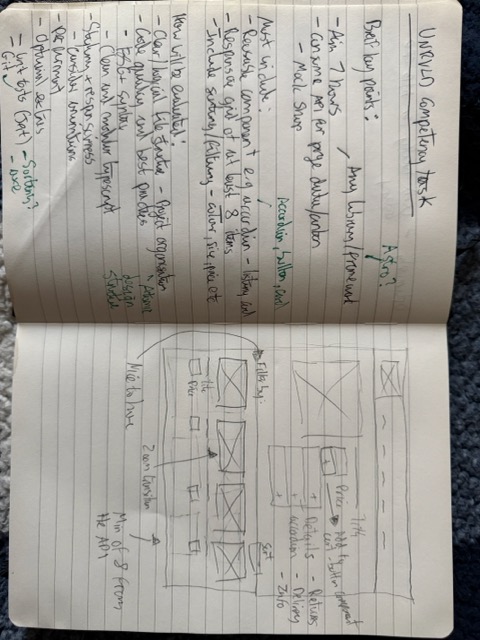 UNRVLD Competency task
Brief key points:
Astro?
- Aim 7 hours
Any library/framework
- Consume API for page data/content
- Mock Shop
Accordion, button, card
Must include:
- Reusable component e.g accordion - listing card
- Responsive grid of at least 8 items
- Include sorting/filtering - colour, size, price etc
How will be evaluated:
- Clear/logical file structure - Project organisation
- Code quality and best practices
- ES6+ syntax
- Clean and modular typescript
Atomic
design
structure
- Styling + responsiveness
- consider animations
- Performant
- Optional extras
- unit tests (Jest)
- Git ✓
Title
Price
Add to
cart - button component
Details
accordion
- Returns
- Delivery
- Info
Filter by:
Sort
Title
Price
Zoom transition
Nice to have
Min of 8 from
the API